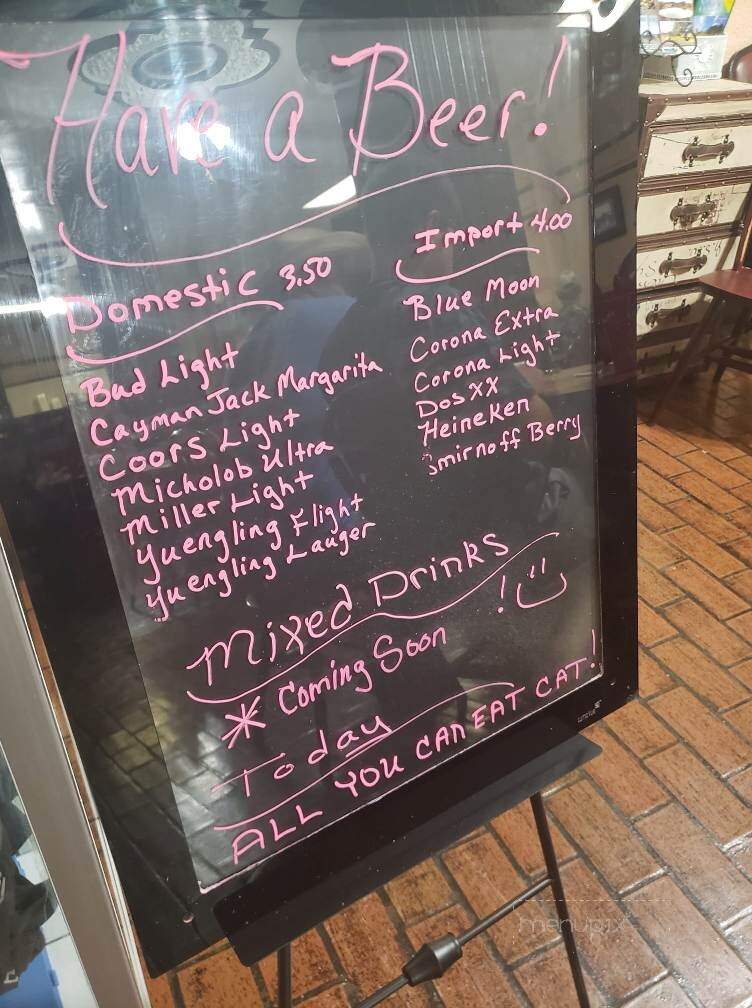 Have a Beer!
Domestic 3.50
Bud Light
Cayman Jack Margarita
Coors Light
Micholob Ultra
Miller Light
Yuengling Flight
Yuengling Lauger
Import 4.00
Blue Moon
Corona Extra
Corona Light
Dos XX
Heineken
Smirnoff Berry
Mixed Drinks
* Coming Soon !
Today
ALL YOU CAN EAT CAT!
menupix